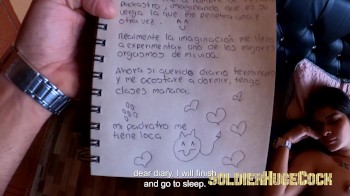 padrastro, imaginando que era su
verga la que me penetra una y
otra vez.
Realmente la imaginación me llevo
a experimentar uno de los mejores
orgasmos de mi vida.
Ahora si querido diario terminare
y me acostare a dormir, tengo
clases mañana.
mi padrastro me
tiene loca
dear diary. I will finish
and go to sleep.
SOLDIERHUGECOCK